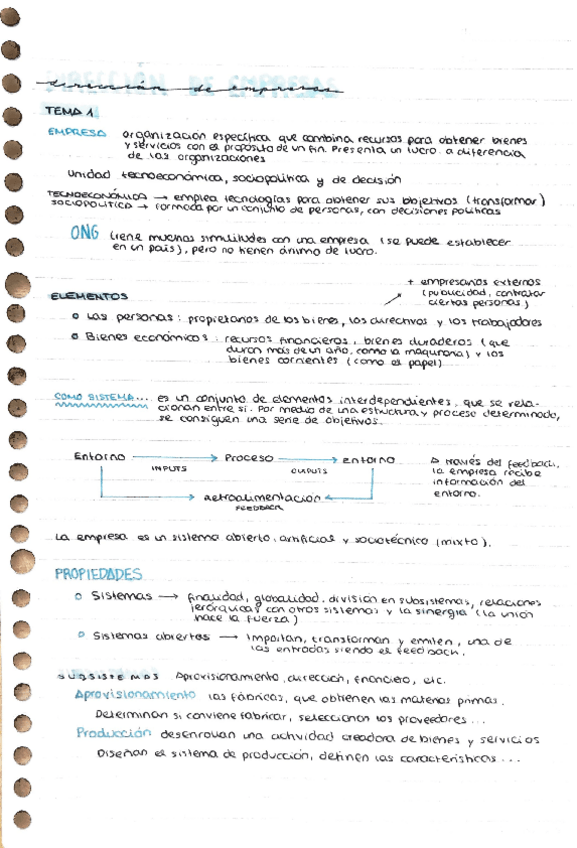 dirección de empresas
TEMA 1
EMPRESA organización específica que combina recursos para obtener bienes
y servicios con el propósito de un fin. Presenta un lucro a diferencia
de las organizaciones
Unidad tecnoeconómica, sociopolítica y de decisión
TECNOECONÓMICA → emplea tecnologías para obtener sus objetivos (transformar)
SOCIOPOLÍTICA → formada por un conjunto de personas, con decisiones políticas
ONG tiene muchas similitudes con una empresa (se puede establecer
en un país), pero no tienen ánimo de lucro.
+ empresarios externos
(publicidad, contratar
ciertas personas)
ELEMENTOS
Las personas: propietarios de los bienes, los directivos y los trabajadores
Bienes económicos: recursos financieros, bienes duraderos (que
duran más de un año, como la maquinaria) y los
bienes corrientes (como el papel)
COMO SISTEMA... es un conjunto de elementos interdependientes, que se rela-
cionan entre sí. Por medio de una estructura y proceso determinado,
se consiguen una serie de objetivos.
Entorno → Proceso → entorno
INPUTS OUTPUTS
retroalimentación
FEEDBACK
A través del feedback,
la empresa recibe
información del
entorno.
La empresa es un sistema abierto, artificial y sociotécnico (mixto).
PROPIEDADES
Sistemas → finalidad, globalidad, división en subsistemas, relaciones
jerárquicas con otros sistemas y la sinergia (la unión
hace la fuerza)
Sistemas abiertos → Importan, transforman y emiten, una de
las entradas siendo el feedback.
SUBSISTEMAS Aprovisionamiento, dirección, financiero, etc.
Aprovisionamiento las fábricas, que obtienen las materias primas.
Determinan si conviene fabricar, seleccionan los proveedores...
Producción desenrollan una actividad creadora de bienes y servicios
Diseñan el sistema de producción, definen las características...